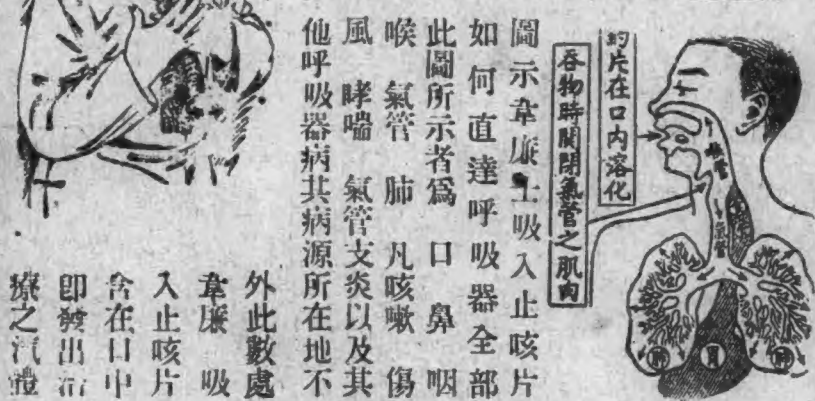 葯片在口內溶化
吞物時關閉氣管之肌肉
氣管
肺
胃
肺
圖示韋廉士吸入止咳片
如何直達呼吸器全部
此圖所示者爲 口 鼻 咽
喉 氣管 肺 凡咳嗽 傷
風 哮喘 氣管支炎以及其
他呼吸器病共病源所在地不
外此數處
韋廉 吸
入止咳片
含在口中
即發出治
療之汽體